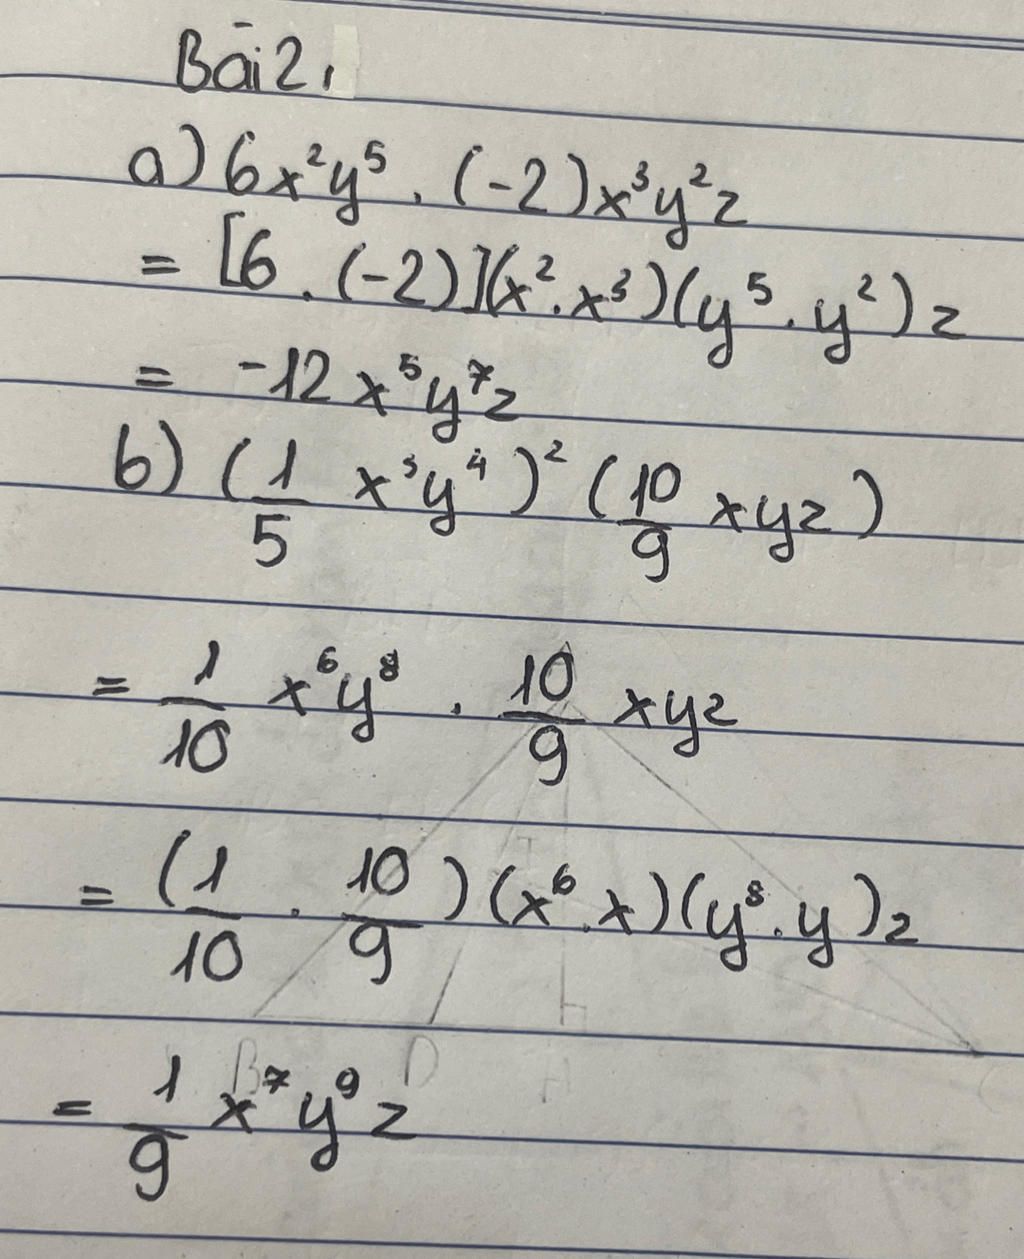 Bāi 2,
a) 6x²y⁵ . (-2)x³y²z
= [6 . (-2)](x² . x³)(y⁵ . y²)z
= -12x⁵y⁷z
b) (1/5 x³y⁴)² (10/9 xyz)
= 1/10 x⁶y⁸ . 10/9 xyz
= (1/10 . 10/9)(x⁶ . x)(y⁸ . y)z
= 1/9 x⁷y⁹z
B D H